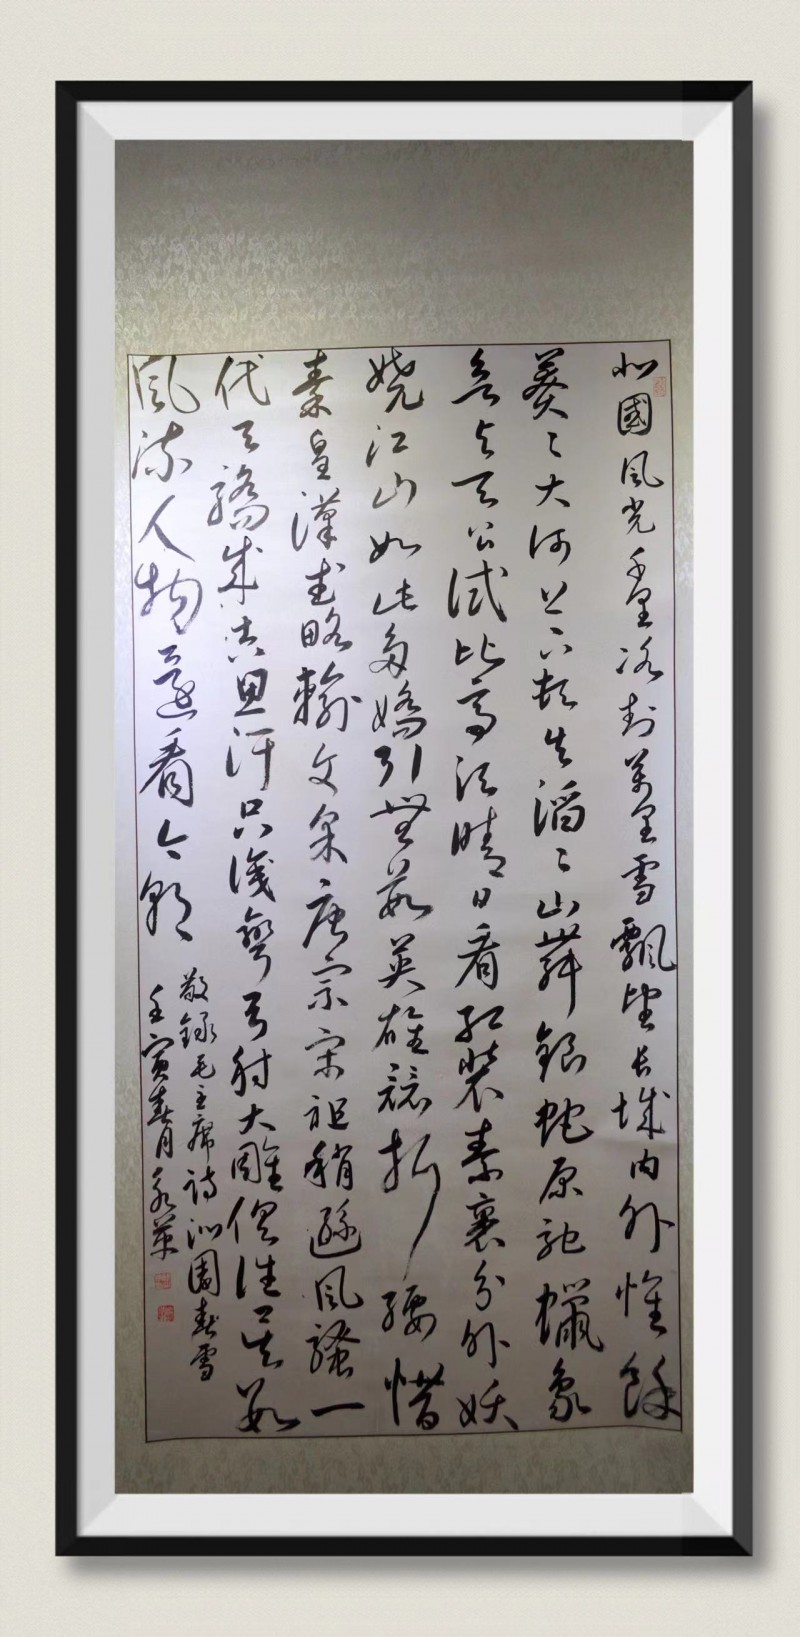 北國風光千里冰封萬里雪飄望長城內外惟餘
莽〻大河上下頓失滔〻山舞銀蛇原馳蠟象
欲与天公試比高須晴日看紅裝素裹分外妖
嬈江山如此多嬌引無數英雄競折腰惜
秦皇漢武略輸文采唐宗宋祖稍遜風騷一
代天驕成吉思汗只識彎弓射大雕俱往矣數
風流人物還看今朝
敬錄毛主席詩沁園春雪
壬寅春月永